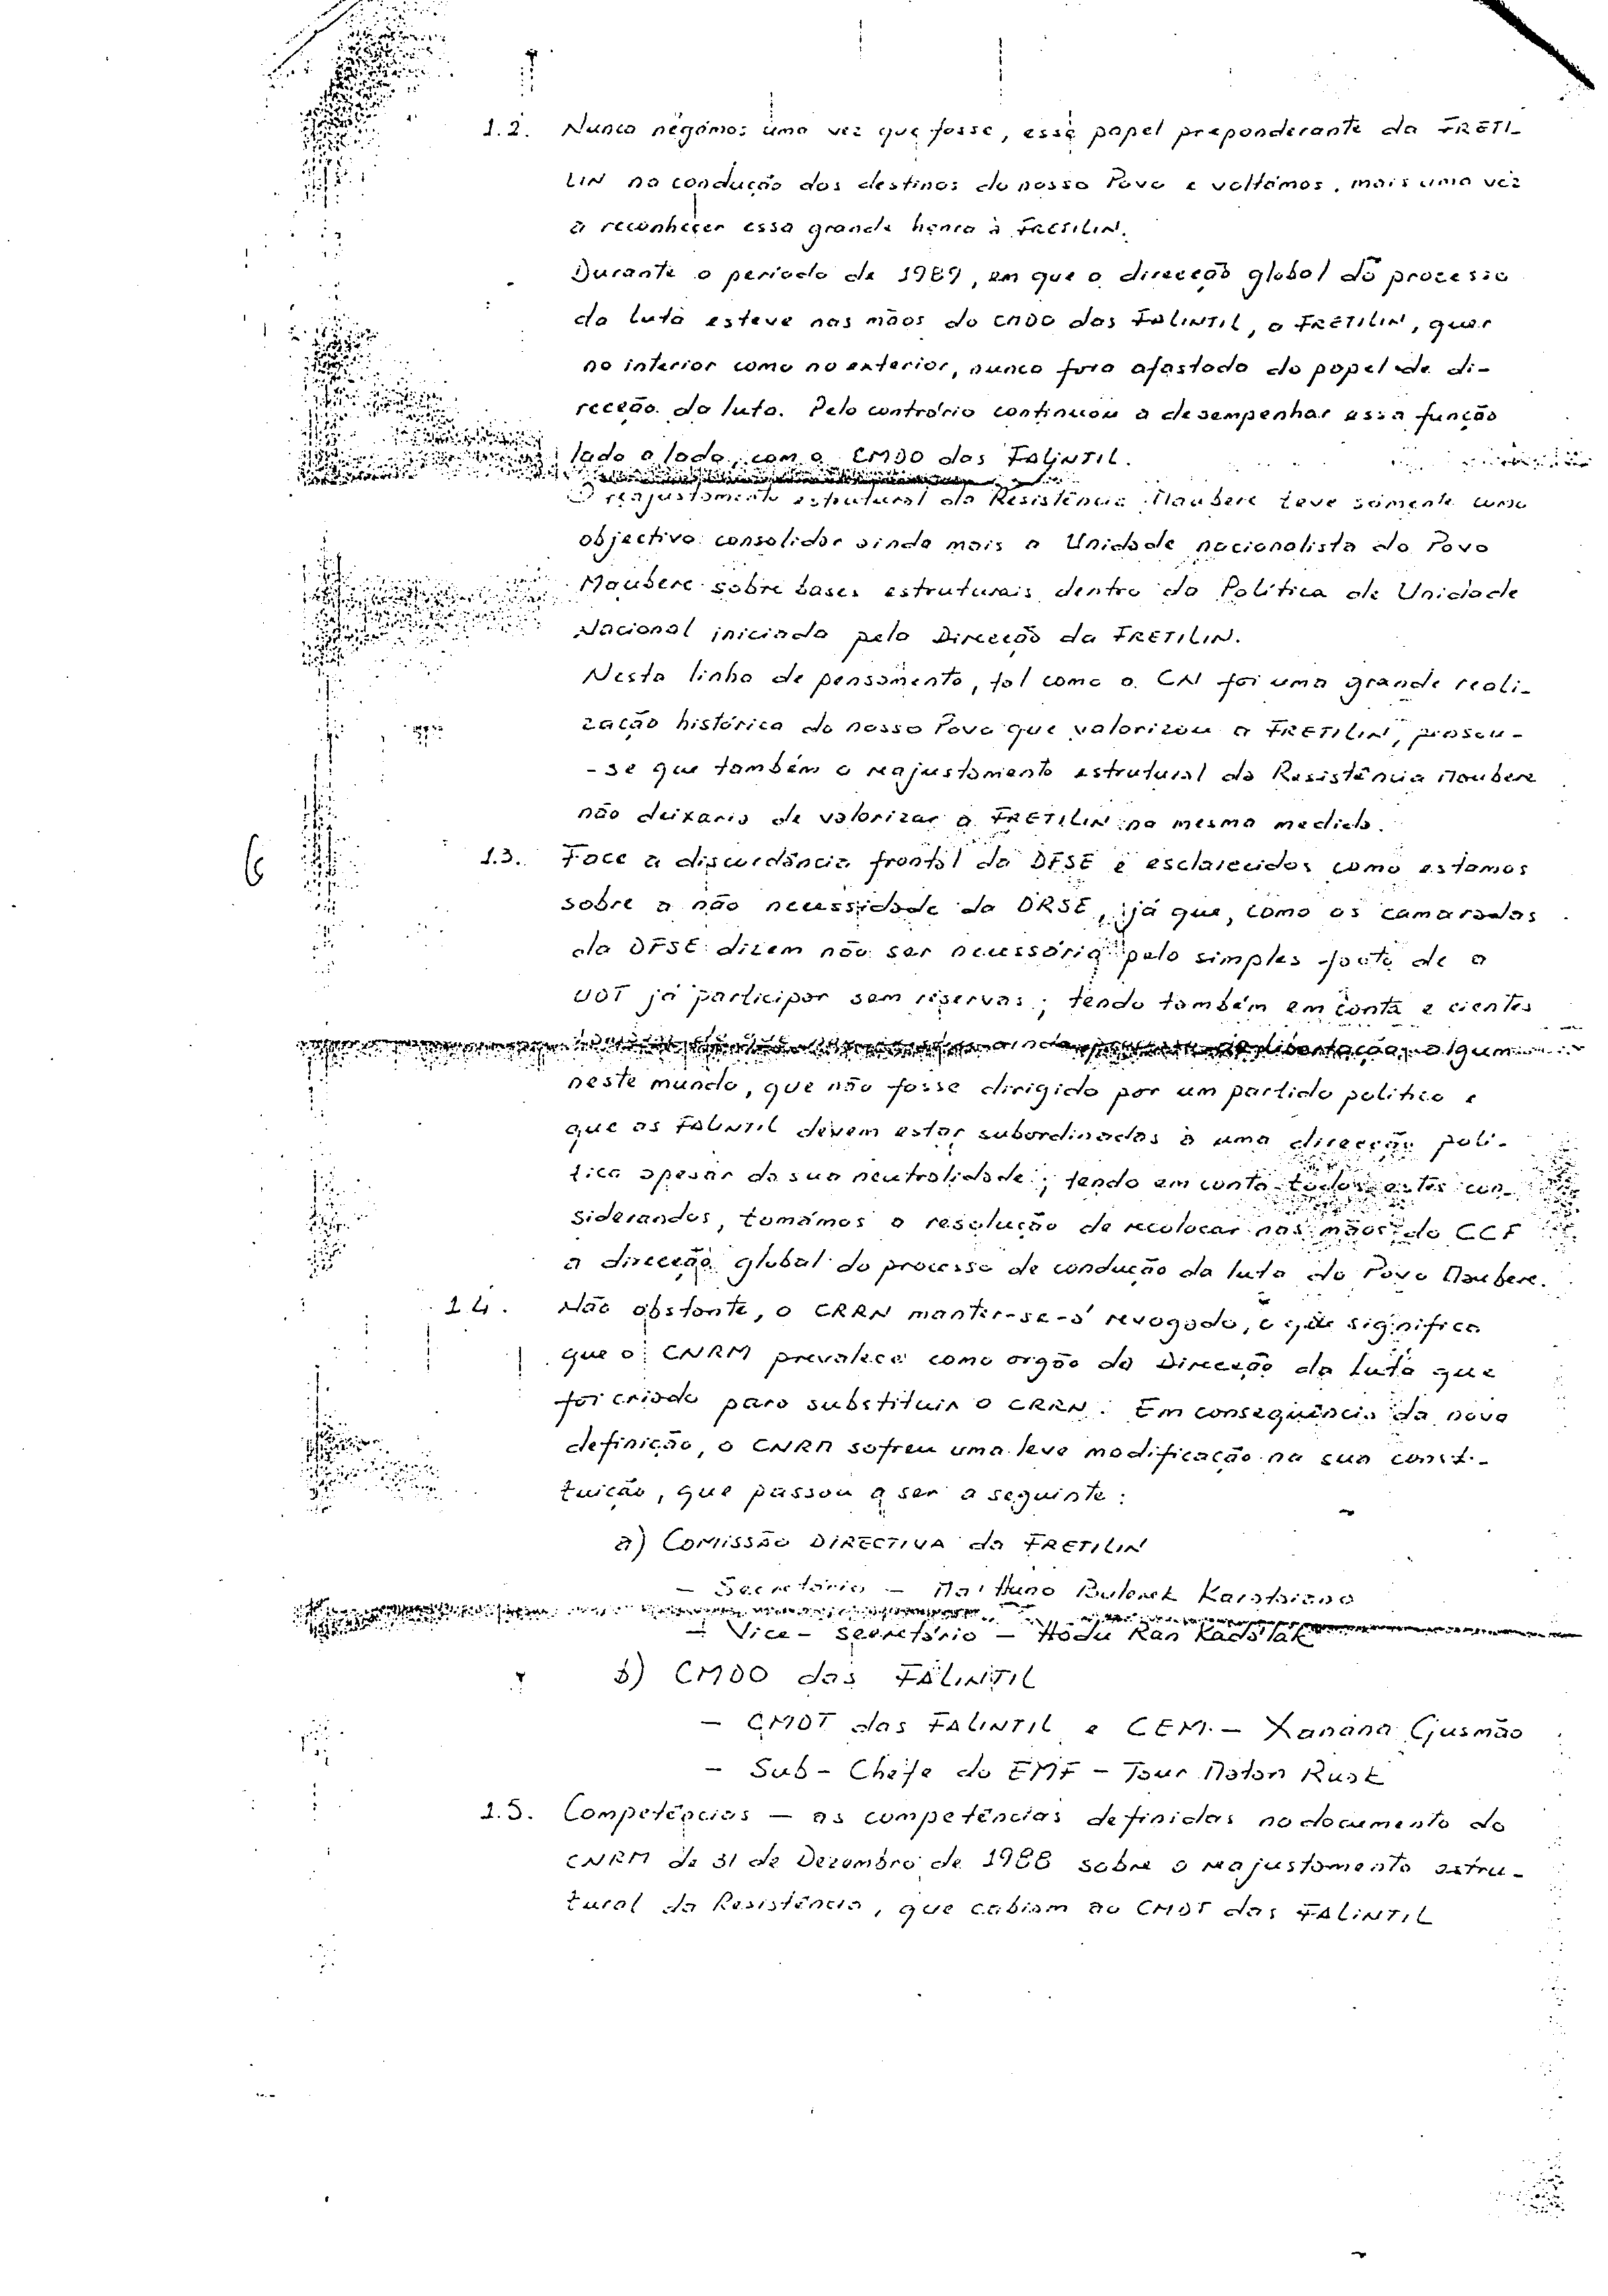 1.2. Nunca negámos uma vez que fosse, esse papel preponderante da FRETI-
LIN na condução dos destinos do nosso Povo e voltámos, mais uma vez
a reconhecer essa grande honra à FRETILIN.
Durante o período de 1989, em que a direcção global do processo
da luta esteve nas mãos do CMDO das FALINTIL, a FRETILIN, quer
no interior como no exterior, nunca fora afastada do papel de di-
recção da luta. Pelo contrário continuou a desempenhar essa função
lado a lado, com o CMDO das FALINTIL.
O reajustamento estrutural da Resistência Maubere teve sómente como
objectivo consolidar ainda mais a Unidade nacionalista do Povo
Maubere sobre bases estruturais dentro da Política de Unidade
Nacional iniciada pela Direcção da FRETILIN.
Nesta linha de pensamento, tal como a CN foi uma grande reali-
zação histórica do nosso Povo que valorizou a FRETILIN, pensou-
-se que também o reajustamento estrutural da Resistência Maubere
não deixaria de valorizar a FRETILIN na mesma medida.
6
1.3. Face a discordância frontal da DFSE e esclarecidos como estamos
sobre a não necessidade da DRSE, já que, como os camaradas
da DFSE dizem não ser necessária pelo simples facto de a
UDT já participar sem reservas; tendo também em conta e cientes
ainda de libertação, algum
neste mundo, que não fosse dirigido por um partido político e
que as FALINTIL devem estar subordinadas à uma direcção polí-
tica apesar da sua neutralidade; tendo em conta todos estes con-
siderandos, tomámos a resolução de recolocar nas mãos do CCF
a direcção global do processo de condução da luta do Povo Maubere.
1.4. Não obstante, o CRRN manter-se-á revogado, o que significa
que o CNRM prevalece como orgão da Direcção da luta que
foi criado para substituir o CRRN. Em consequência da nova
definição, o CNRM sofreu uma leve modificação na sua consti-
tuição, que passou a ser a seguinte:
a) COMISSÃO DIRECTIVA da FRETILIN
- Secretário - Ma'Huno Bulerek Karathaiano
- Vice-secretário - Hodu Ran Kadalak
b) CMDO das FALINTIL
- CMDT das FALINTIL e CEM - Xanana Gusmão
- Sub-Chefe do EMF - Taur Matan Ruak
1.5. Competências - as competências definidas no documento do
CNRM de 31 de Dezembro de 1988 sobre o reajustamento estru-
tural da Resistência, que cabiam ao CMDT das FALINTIL